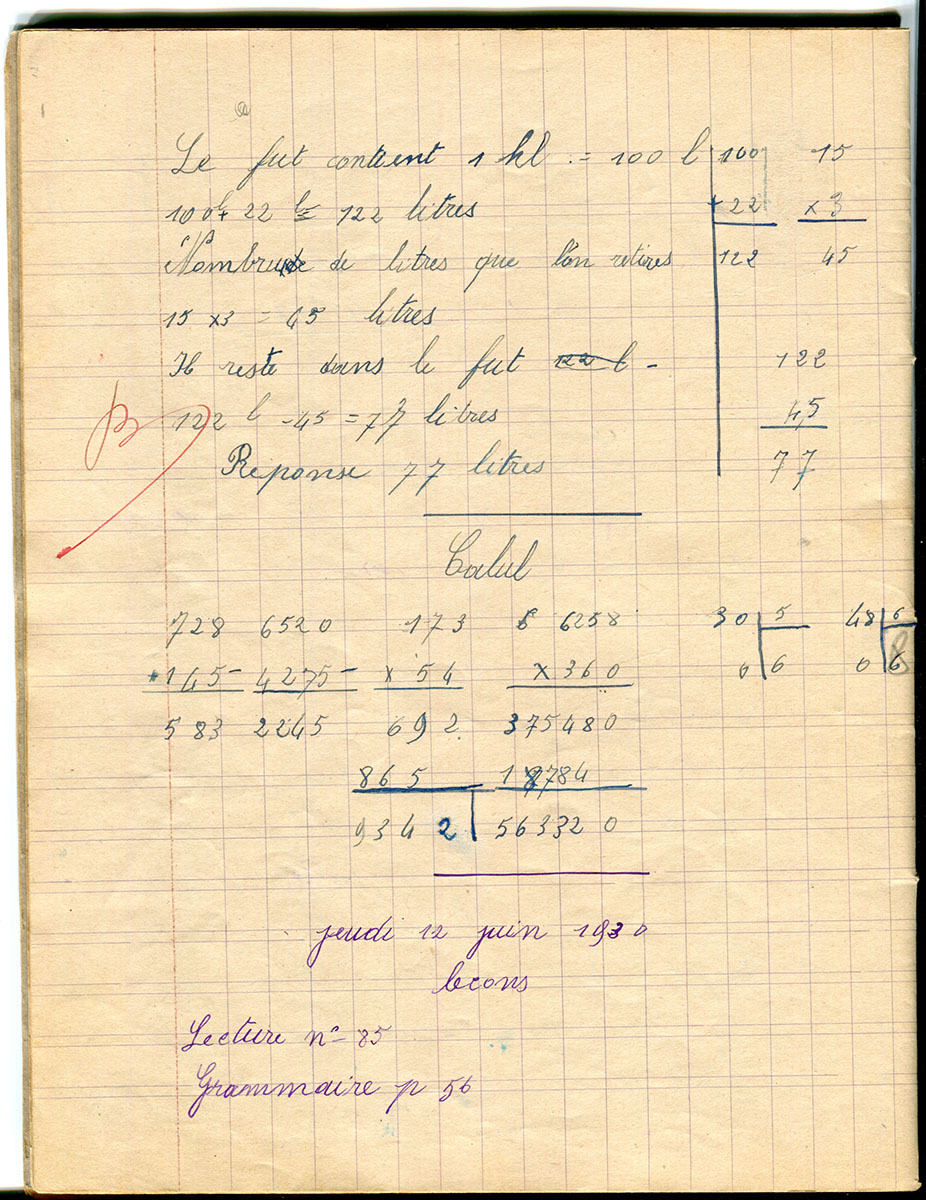 Le fut contient 1 hl. = 100 l
100 l + 22 l = 122 litres
Nombre de litres que l'on retires
15 x 3 = 45 litres
Il reste dans le fut 122 l -
122 l - 45 = 77 litres
Réponse 77 litres
100 15
+ 22 x 3
122 45
122
45
77
B
Calul
728 6520 173 6 6258 30 5 48 6
+ 145 - 4275 - x 54 x 360 0 6 0 6
583 2245 692 375480
865 18784
9342 563320
jeudi 12 juin 1930
lecons
Lecture n° 85
Grammaire p 56